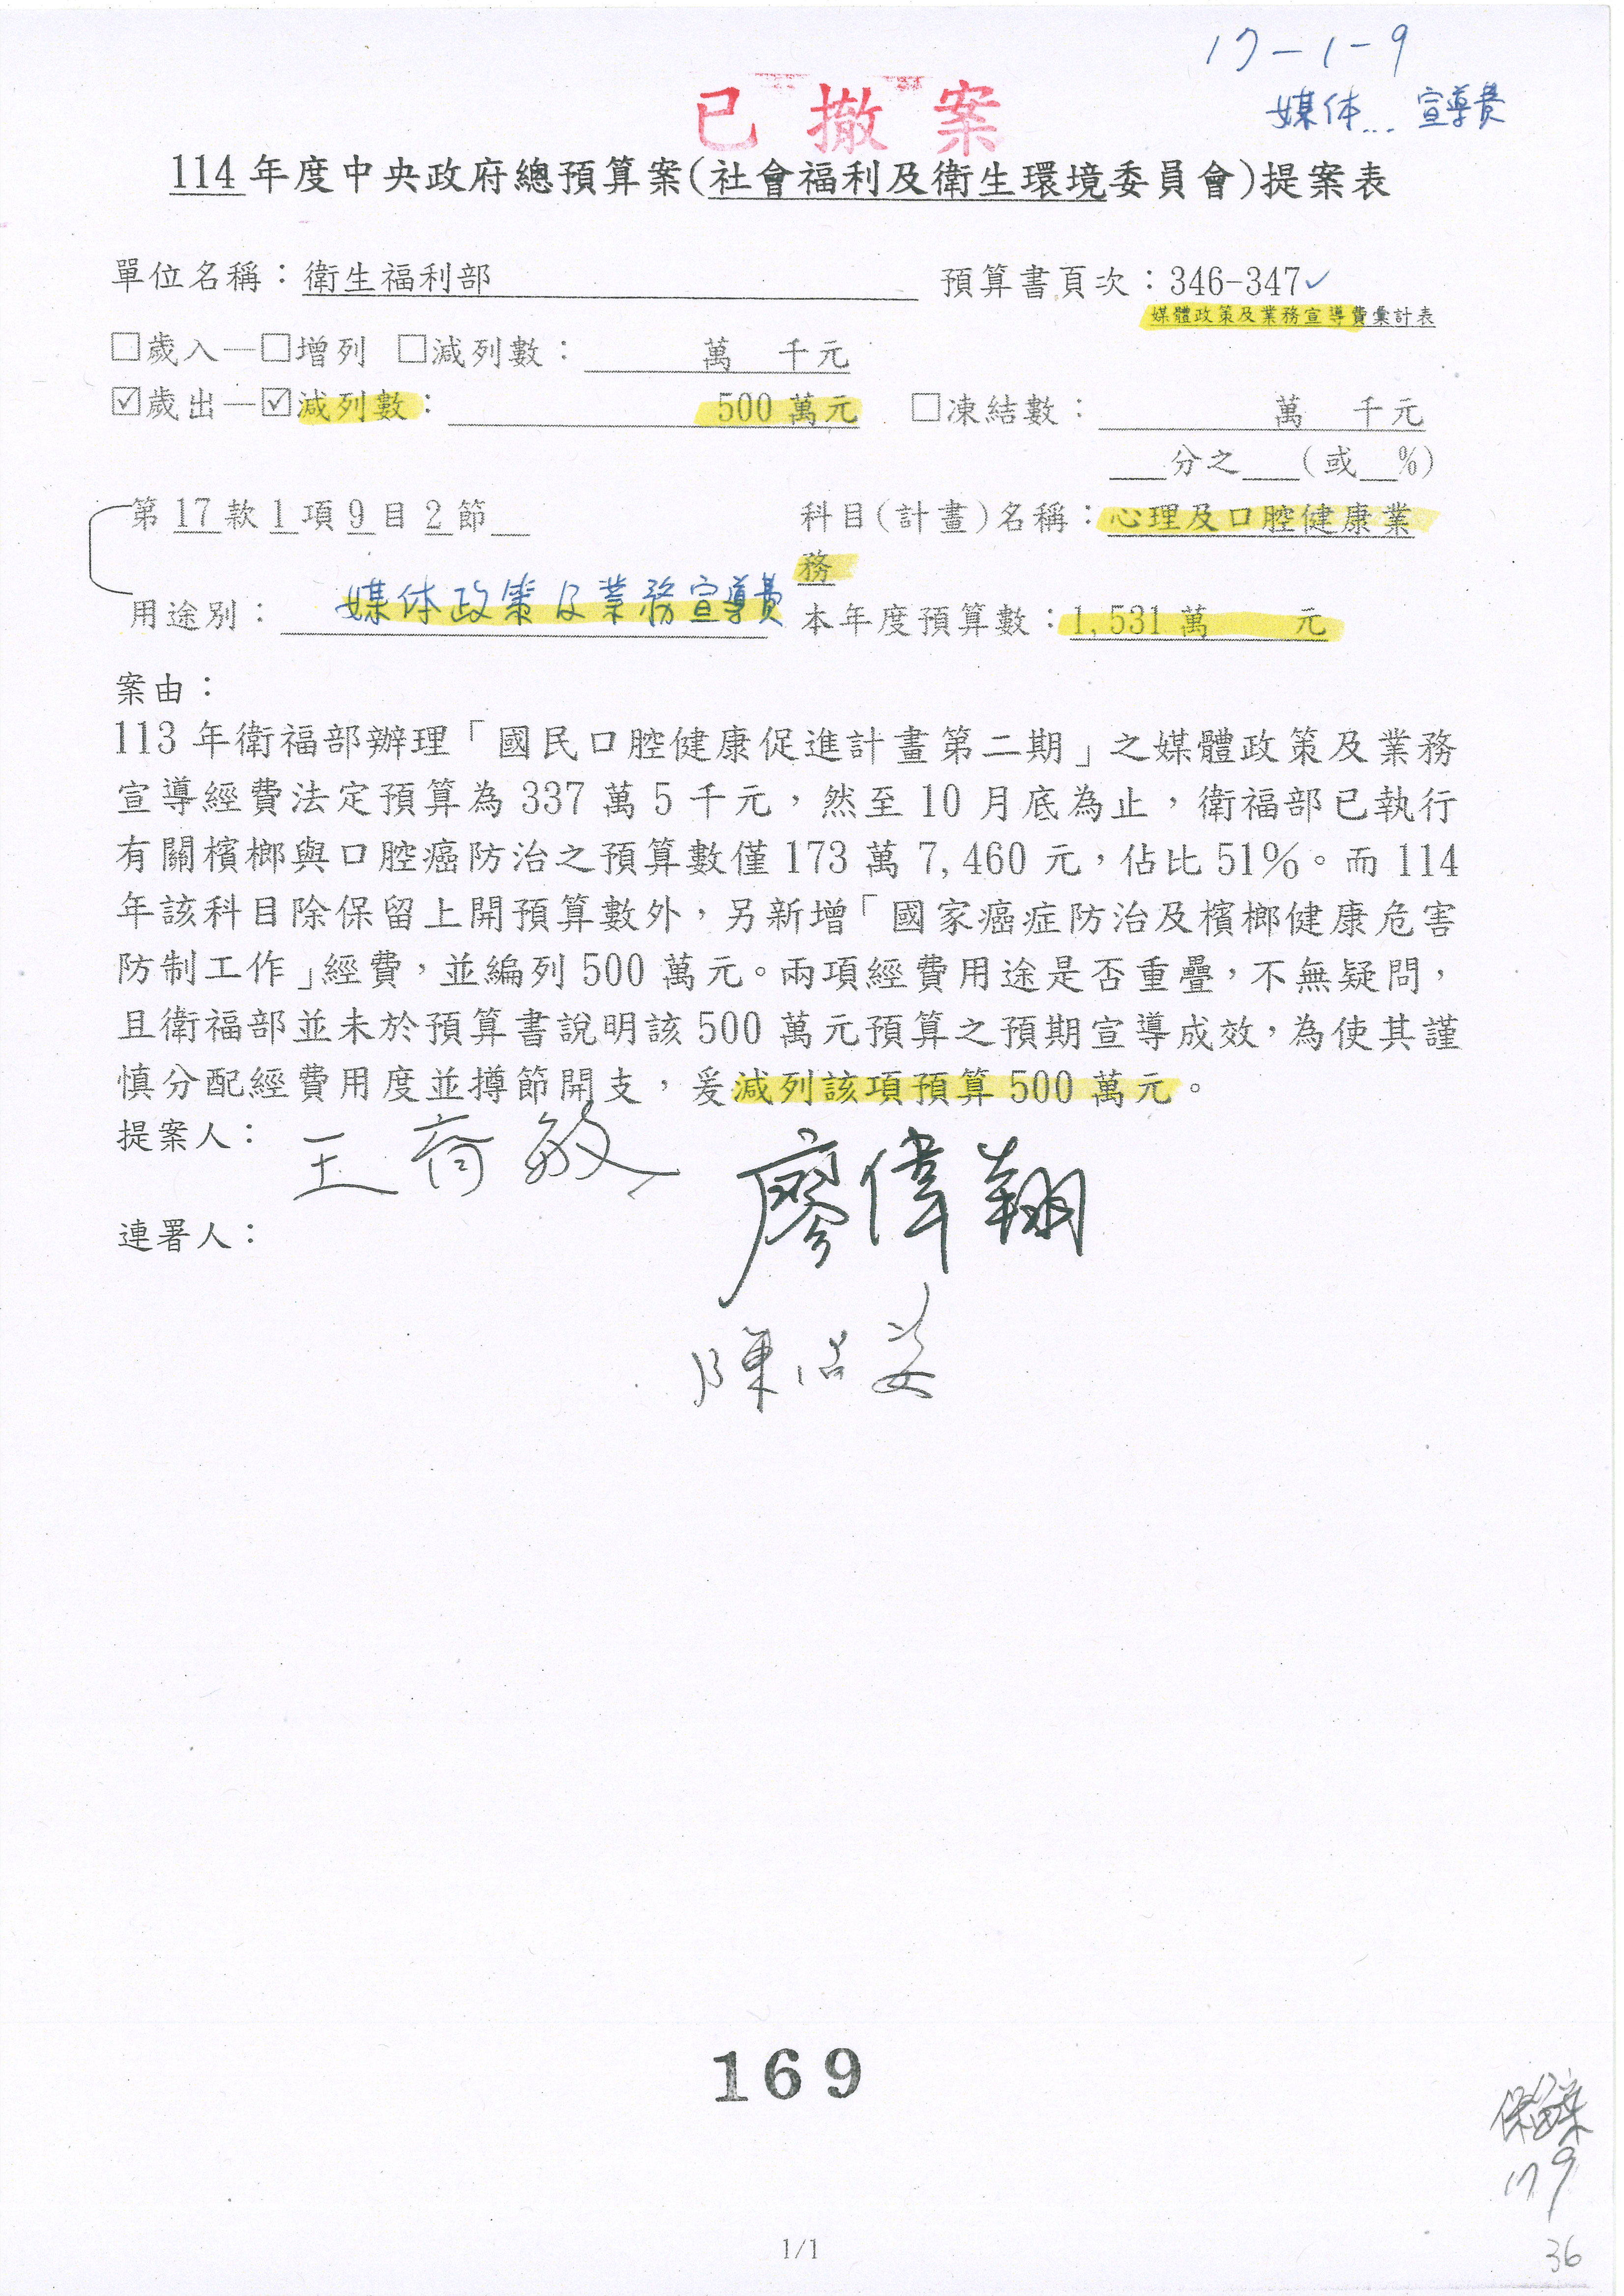 17-1-9
媒体... 宣導費
已撤案
114年度中央政府總預算案(社會福利及衛生環境委員會)提案表
單位名稱：衛生福利部 預算書頁次：346-347✓
媒體政策及業務宣導費彙計表
□歲入—□增列 □減列數： 萬 千元
☑歲出—☑減列數： 500萬元 □凍結數： 萬 千元
分之 (或 %)
第17款1項9目2節 科目(計畫)名稱：心理及口腔健康業
務
用途別： 媒体政策及業務宣導費 本年度預算數：1,531萬 元
案由：
113年衛福部辦理「國民口腔健康促進計畫第二期」之媒體政策及業務
宣導經費法定預算為337萬5千元，然至10月底為止，衛福部已執行
有關檳榔與口腔癌防治之預算數僅173萬7,460元，佔比51%。而114
年該科目除保留上開預算數外，另新增「國家癌症防治及檳榔健康危害
防制工作」經費，並編列500萬元。兩項經費用途是否重疊，不無疑問，
且衛福部並未於預算書說明該500萬元預算之預期宣導成效，為使其謹
慎分配經費用度並撙節開支，爰減列該項預算500萬元。
提案人： 王育敏 廖偉翔
連署人：
陳菁徽
169
保留案
179
1/1
36